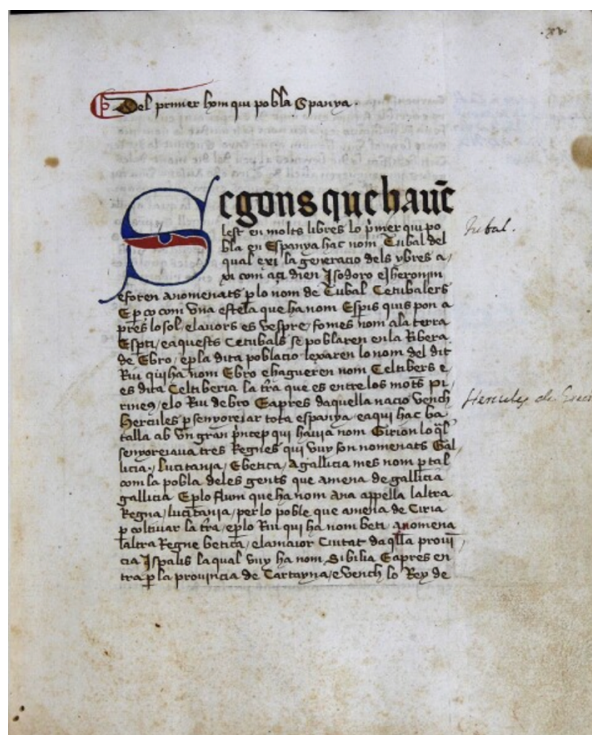 .xv.
Del primer hom qui pobla Spanya.
Segons que hauē
lest en molts libres lo p̄mer qui po
bla en Espanya hac nom Tubal del
qual exi la generacio dels ybres a/
xi com açi dien Isodoro e Iheronim
e foren anomenats p lo nom de Tubal Cetubalers
E p ço com vna estela que ha nom Espis quis pon a
pres lo sol, e lauors es vespre, fo mes nom a la terra
Espti, e aquests Cetubals se poblaren en la Ribera
de Ebro, e p la dita poblacio lexaren lo nom del dit
Riu qui ha nom Ebro e hagueren nom Celtibers e
es dita Celtiberia la tr̄a que es entre los mōts pi
rineꝯ, e lo Riu de bro E apres daquella nacio vench
Hercules p senyorejar tota espanya, e aqui hac ba
talla ab vn gran p̄ncep qui hauia nom Girion lo ql̄
senyoreiaua tres Regnes qui vuy son nomenats Gal
licia, Lucitania, E betica, A gallicia mes nom p tal
com la pobla de les gents que amena de gallicia
gallicia E p lo flum que ha nom Ana appella laltra
Regna, lucitania, per lo poble que amena de Ciria
p coltiuar la tr̄a, e p lo Riu qui ha nom beti, anomena
laltra Regne betica, e la maior Ciutat daq̄lla prouī
cia Ispalis la qual vuy ha nom Sibilia E apres en
tra p la prouincia de Cartayna, e vench lo Rey de
Tubal.
Hercules de